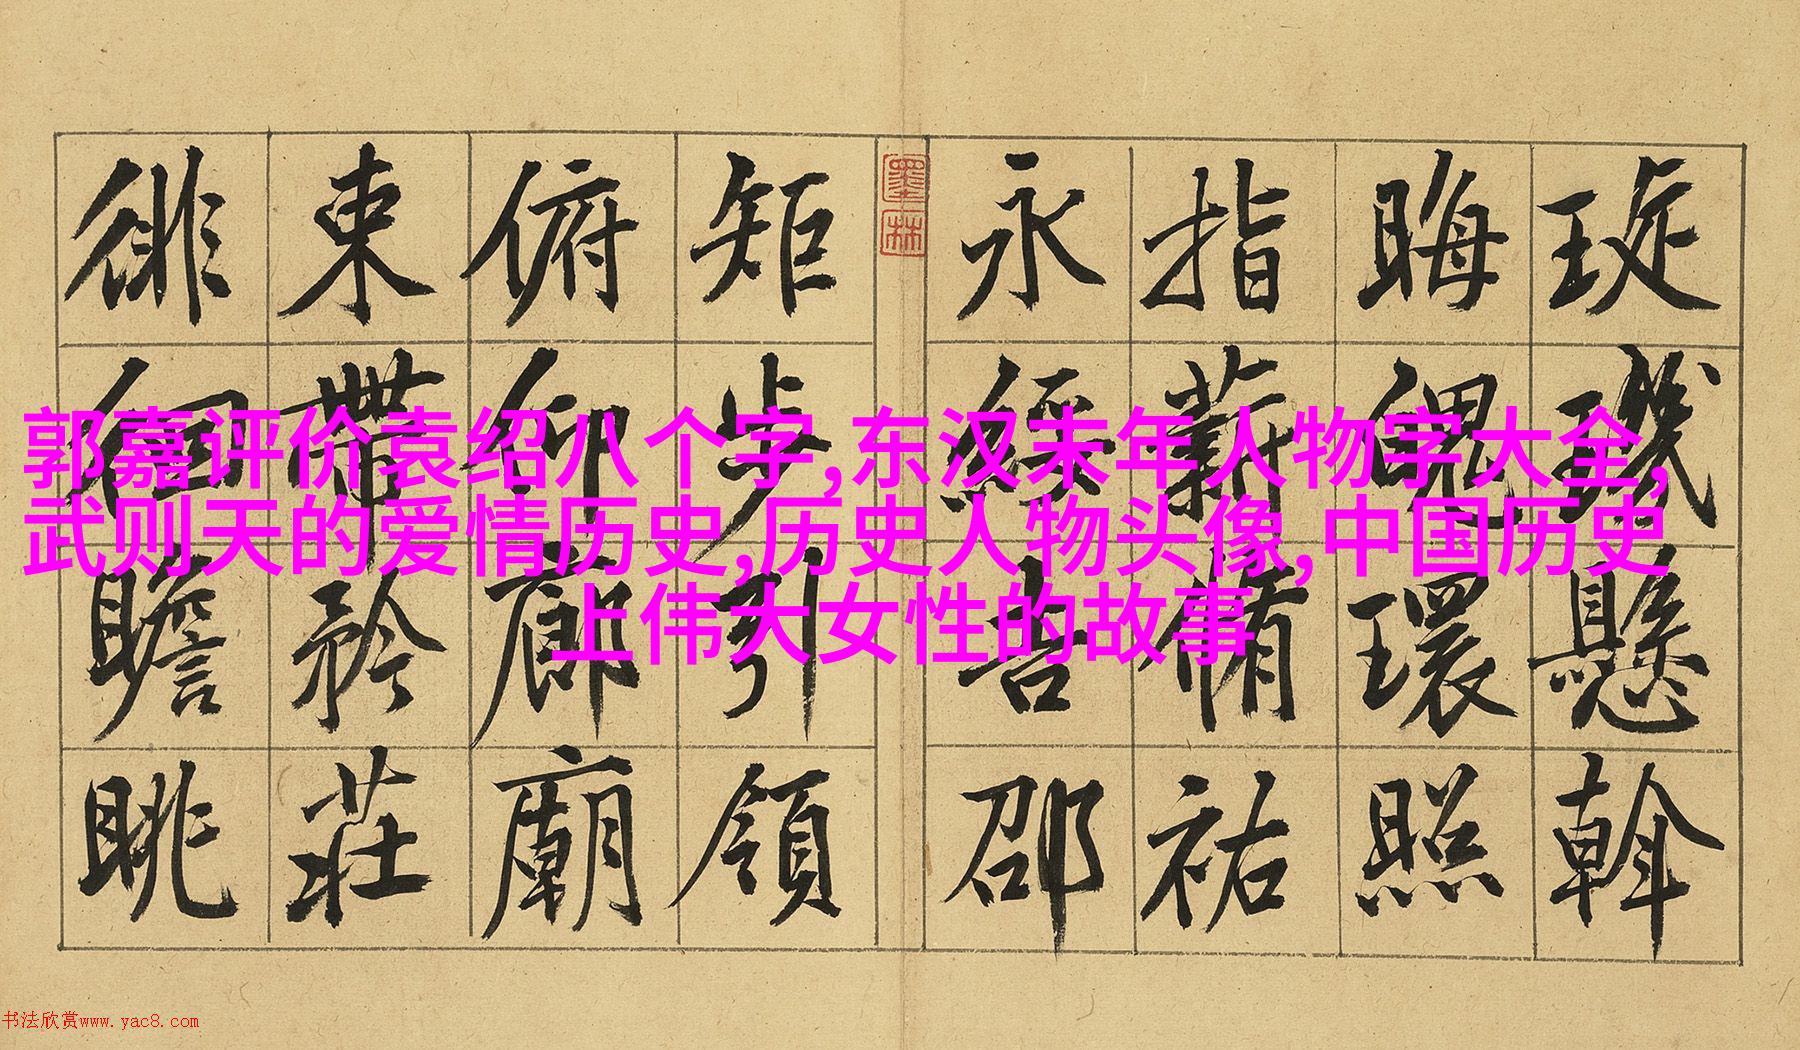 郭嘉评价袁绍八个字,东汉末年人物字大全,
武则天的爱情历史,历史人物头像,中国历史
上伟大女性的故事
琁璣懸斡
晦魄環照
指薪脩祐
永綏吉邵
墨林
矩步引領
俯仰廊廟
束帶矜莊
徘徊瞻眺
书法欣赏www.yac8.com